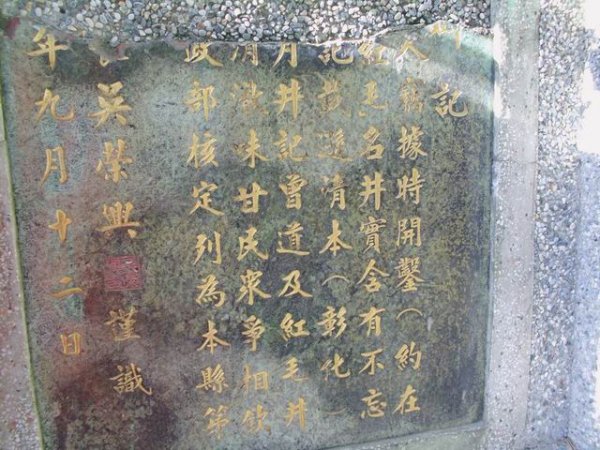 記
人竊據時開鑿(約在
紅毛名井實含有不忘
記載遜清本(彰化
月井記曾道及紅毛井
清澈味甘民衆爭相飲
政部核定列為本縣第
吳榮興 謹識
年九月十二日